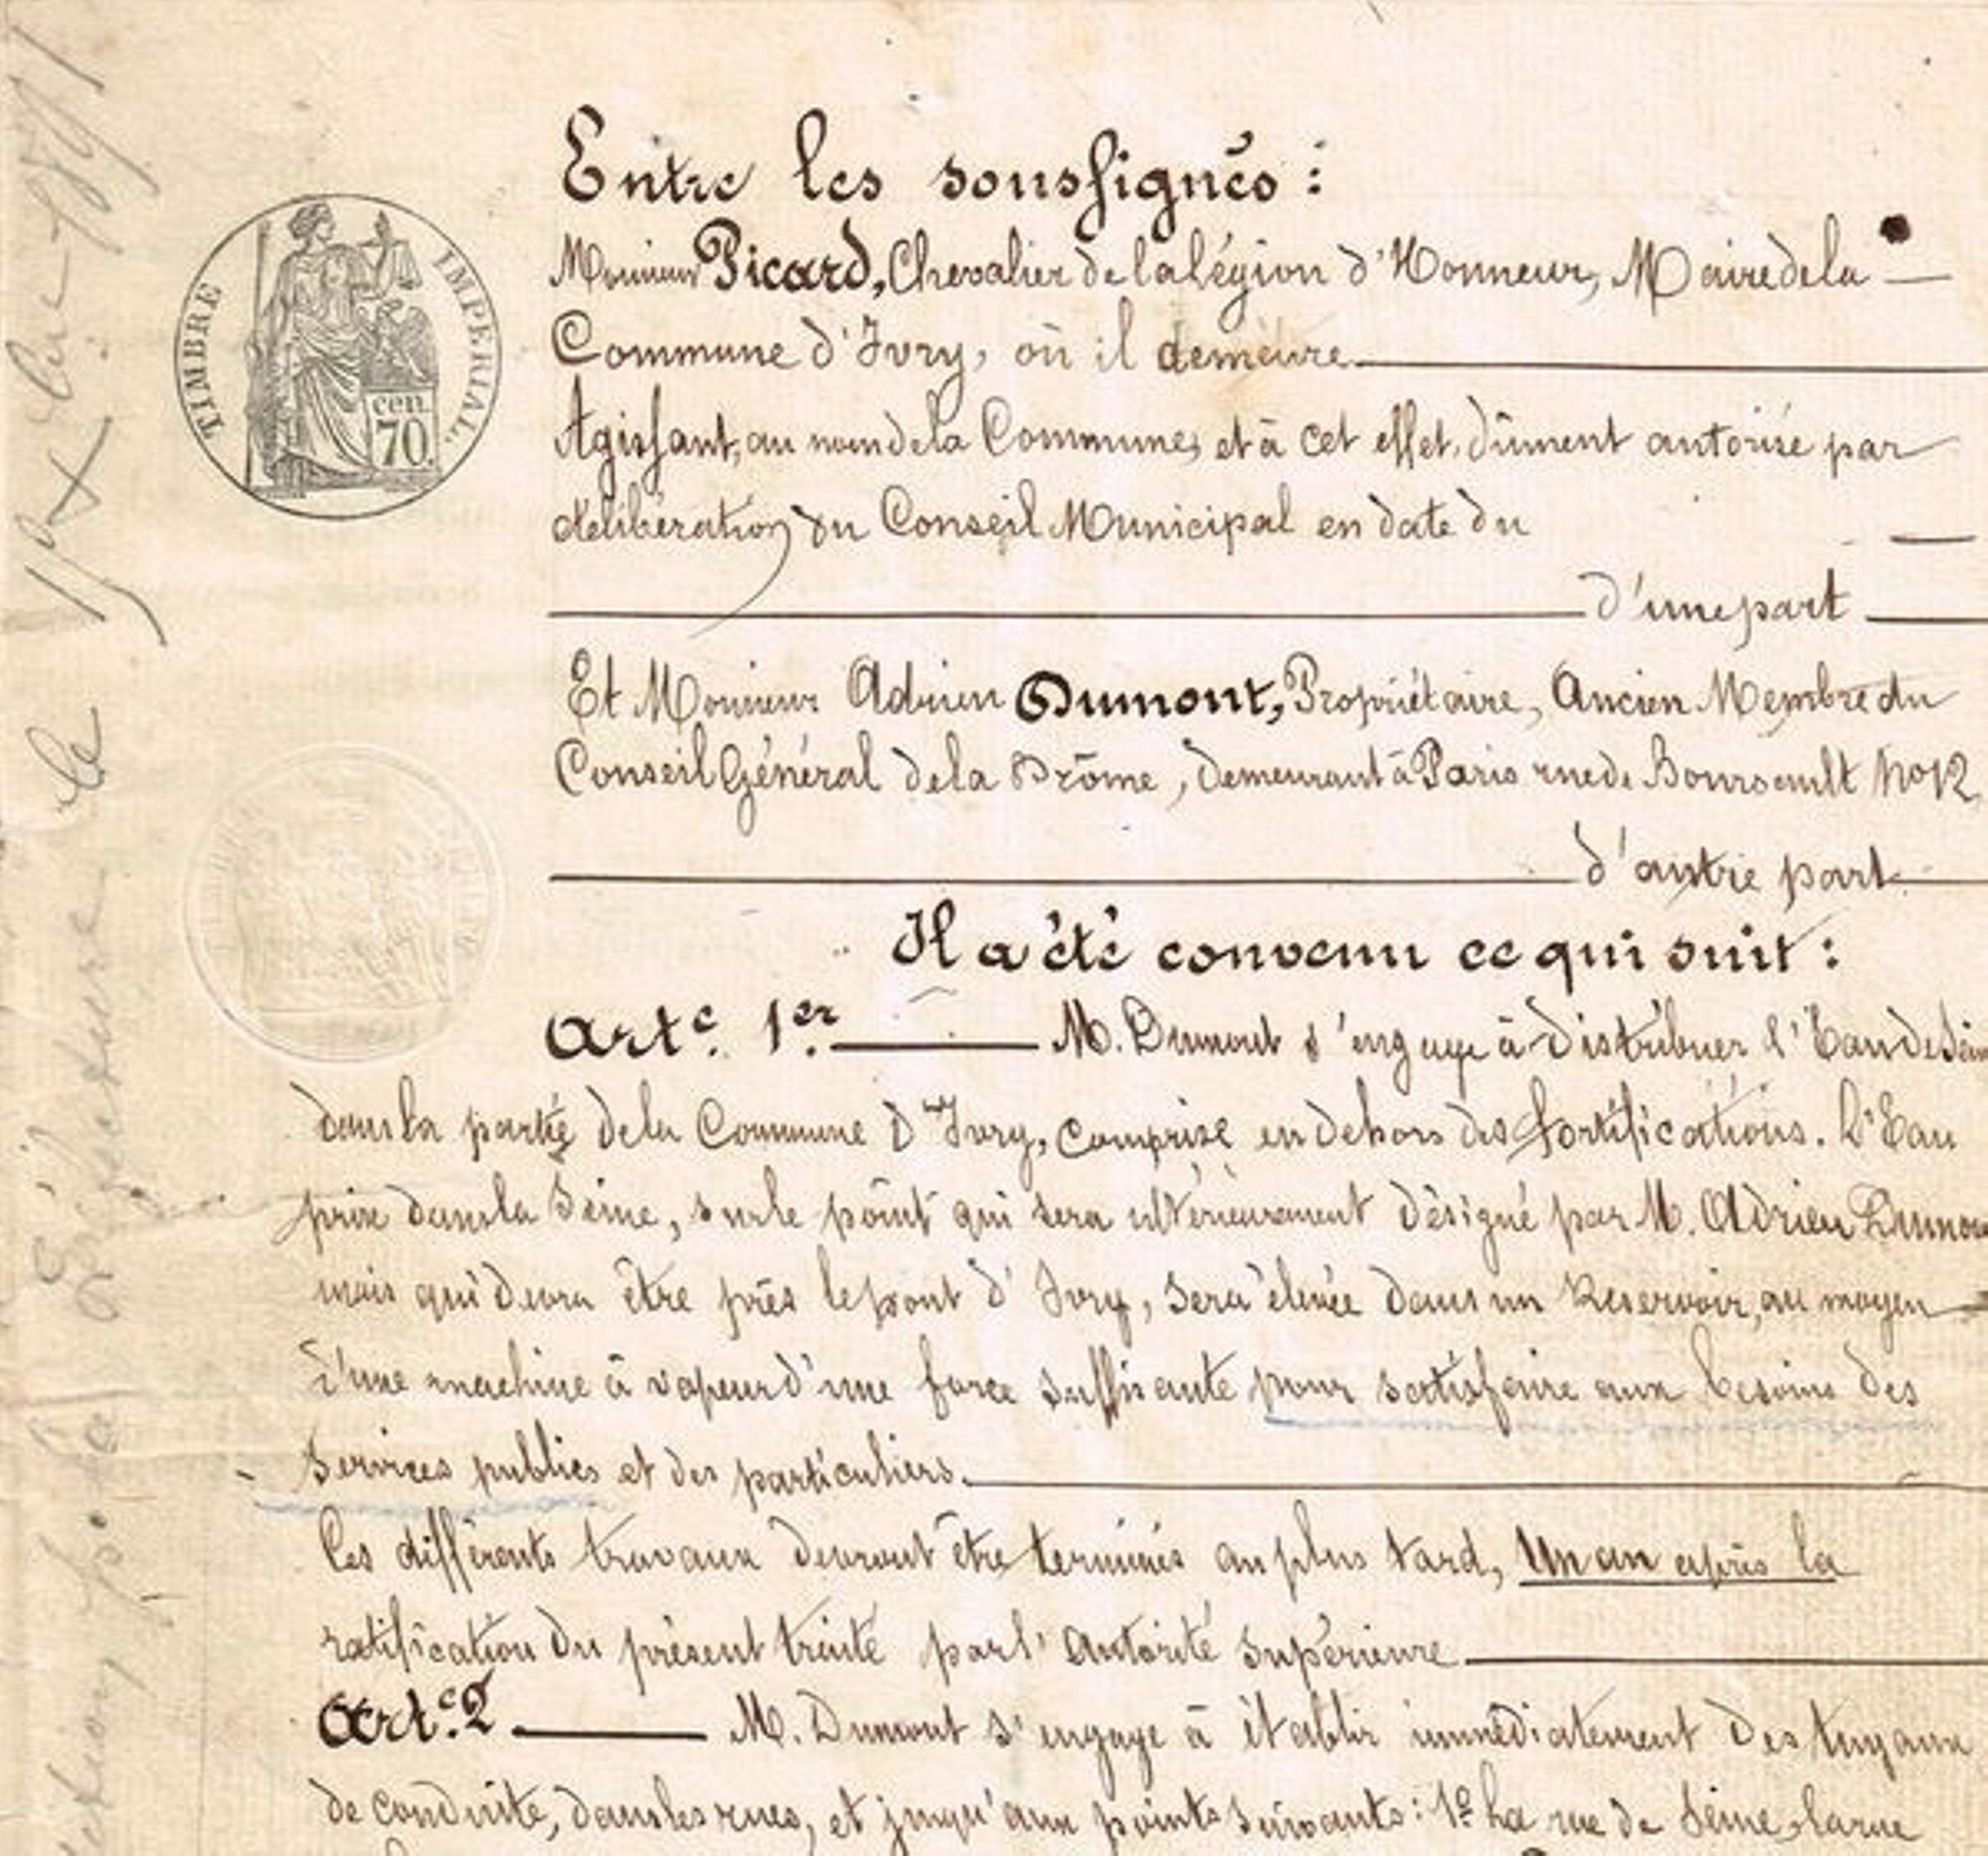 Entre les soussignés :
Monsieur Picard, Chevalier de la légion d'Honneur, Maire de la
Commune d'Ivry, où il demeure
Agissant, au nom de la Commune, et à cet effet, dûment autorisé par
délibération du Conseil Municipal en date du
d'une part
Et Monsieur Adrien Dumont, Propriétaire, Ancien Membre du
Conseil Général de la Drôme, demeurant à Paris rue de Boursault No 12
d'autre part
Il a été convenu ce qui suit :
Artc. 1er M. Dumont s'engage à distribuer l'Eau de
dans la partie de la Commune d'Ivry, comprise en dehors des fortifications. L'Eau
prise dans la Seine, sur le point qui sera ultérieurement désigné par M. Adrien
mais qui devra être près le pont d'Ivry, sera élevée dans un Reservoir, au moyen
d'une machine à vapeur d'une force suffisante pour satisfaire aux besoins des
services publics et des particuliers.
Les différents travaux devront être terminés au plus tard, Un an après la
ratification du présent traité par l'Autorité Supérieure
Artc. 2 M. Dumont s'engage à établir immédiatement des tuyaux
de conduite, dans les rues, et jusqu'aux points suivants : 1º La rue de Seine, la rue
TIMBRE IMPÉRIAL.
cen.
70.
Préfecture le